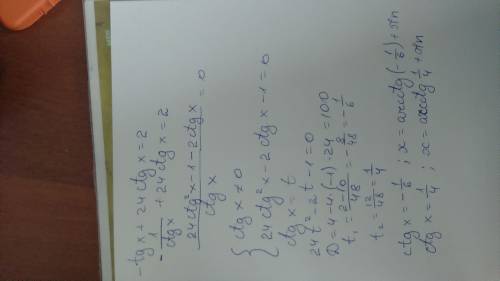 -tg x + 24 ctg x = 2
- 1/ctg x + 24 ctg x = 2
(24 ctg²x - 1 - 2 ctg x)/ctg x = 0
{ ctg x ≠ 0
24 ctg²x - 2 ctg x - 1 = 0
ctg x = t
24t² - 2t - 1 = 0
D = 4 - 4·(-1)·24 = 100
t₁ = (2-10)/48 = -8/48 = -1/6
t₂ = 12/48 = 1/4
ctg x = -1/6 ; x = arcctg(-1/6) + πn
ctg x = 1/4 ; x = arcctg 1/4 + πn